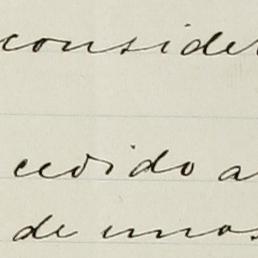 consider
cedido a
de unos